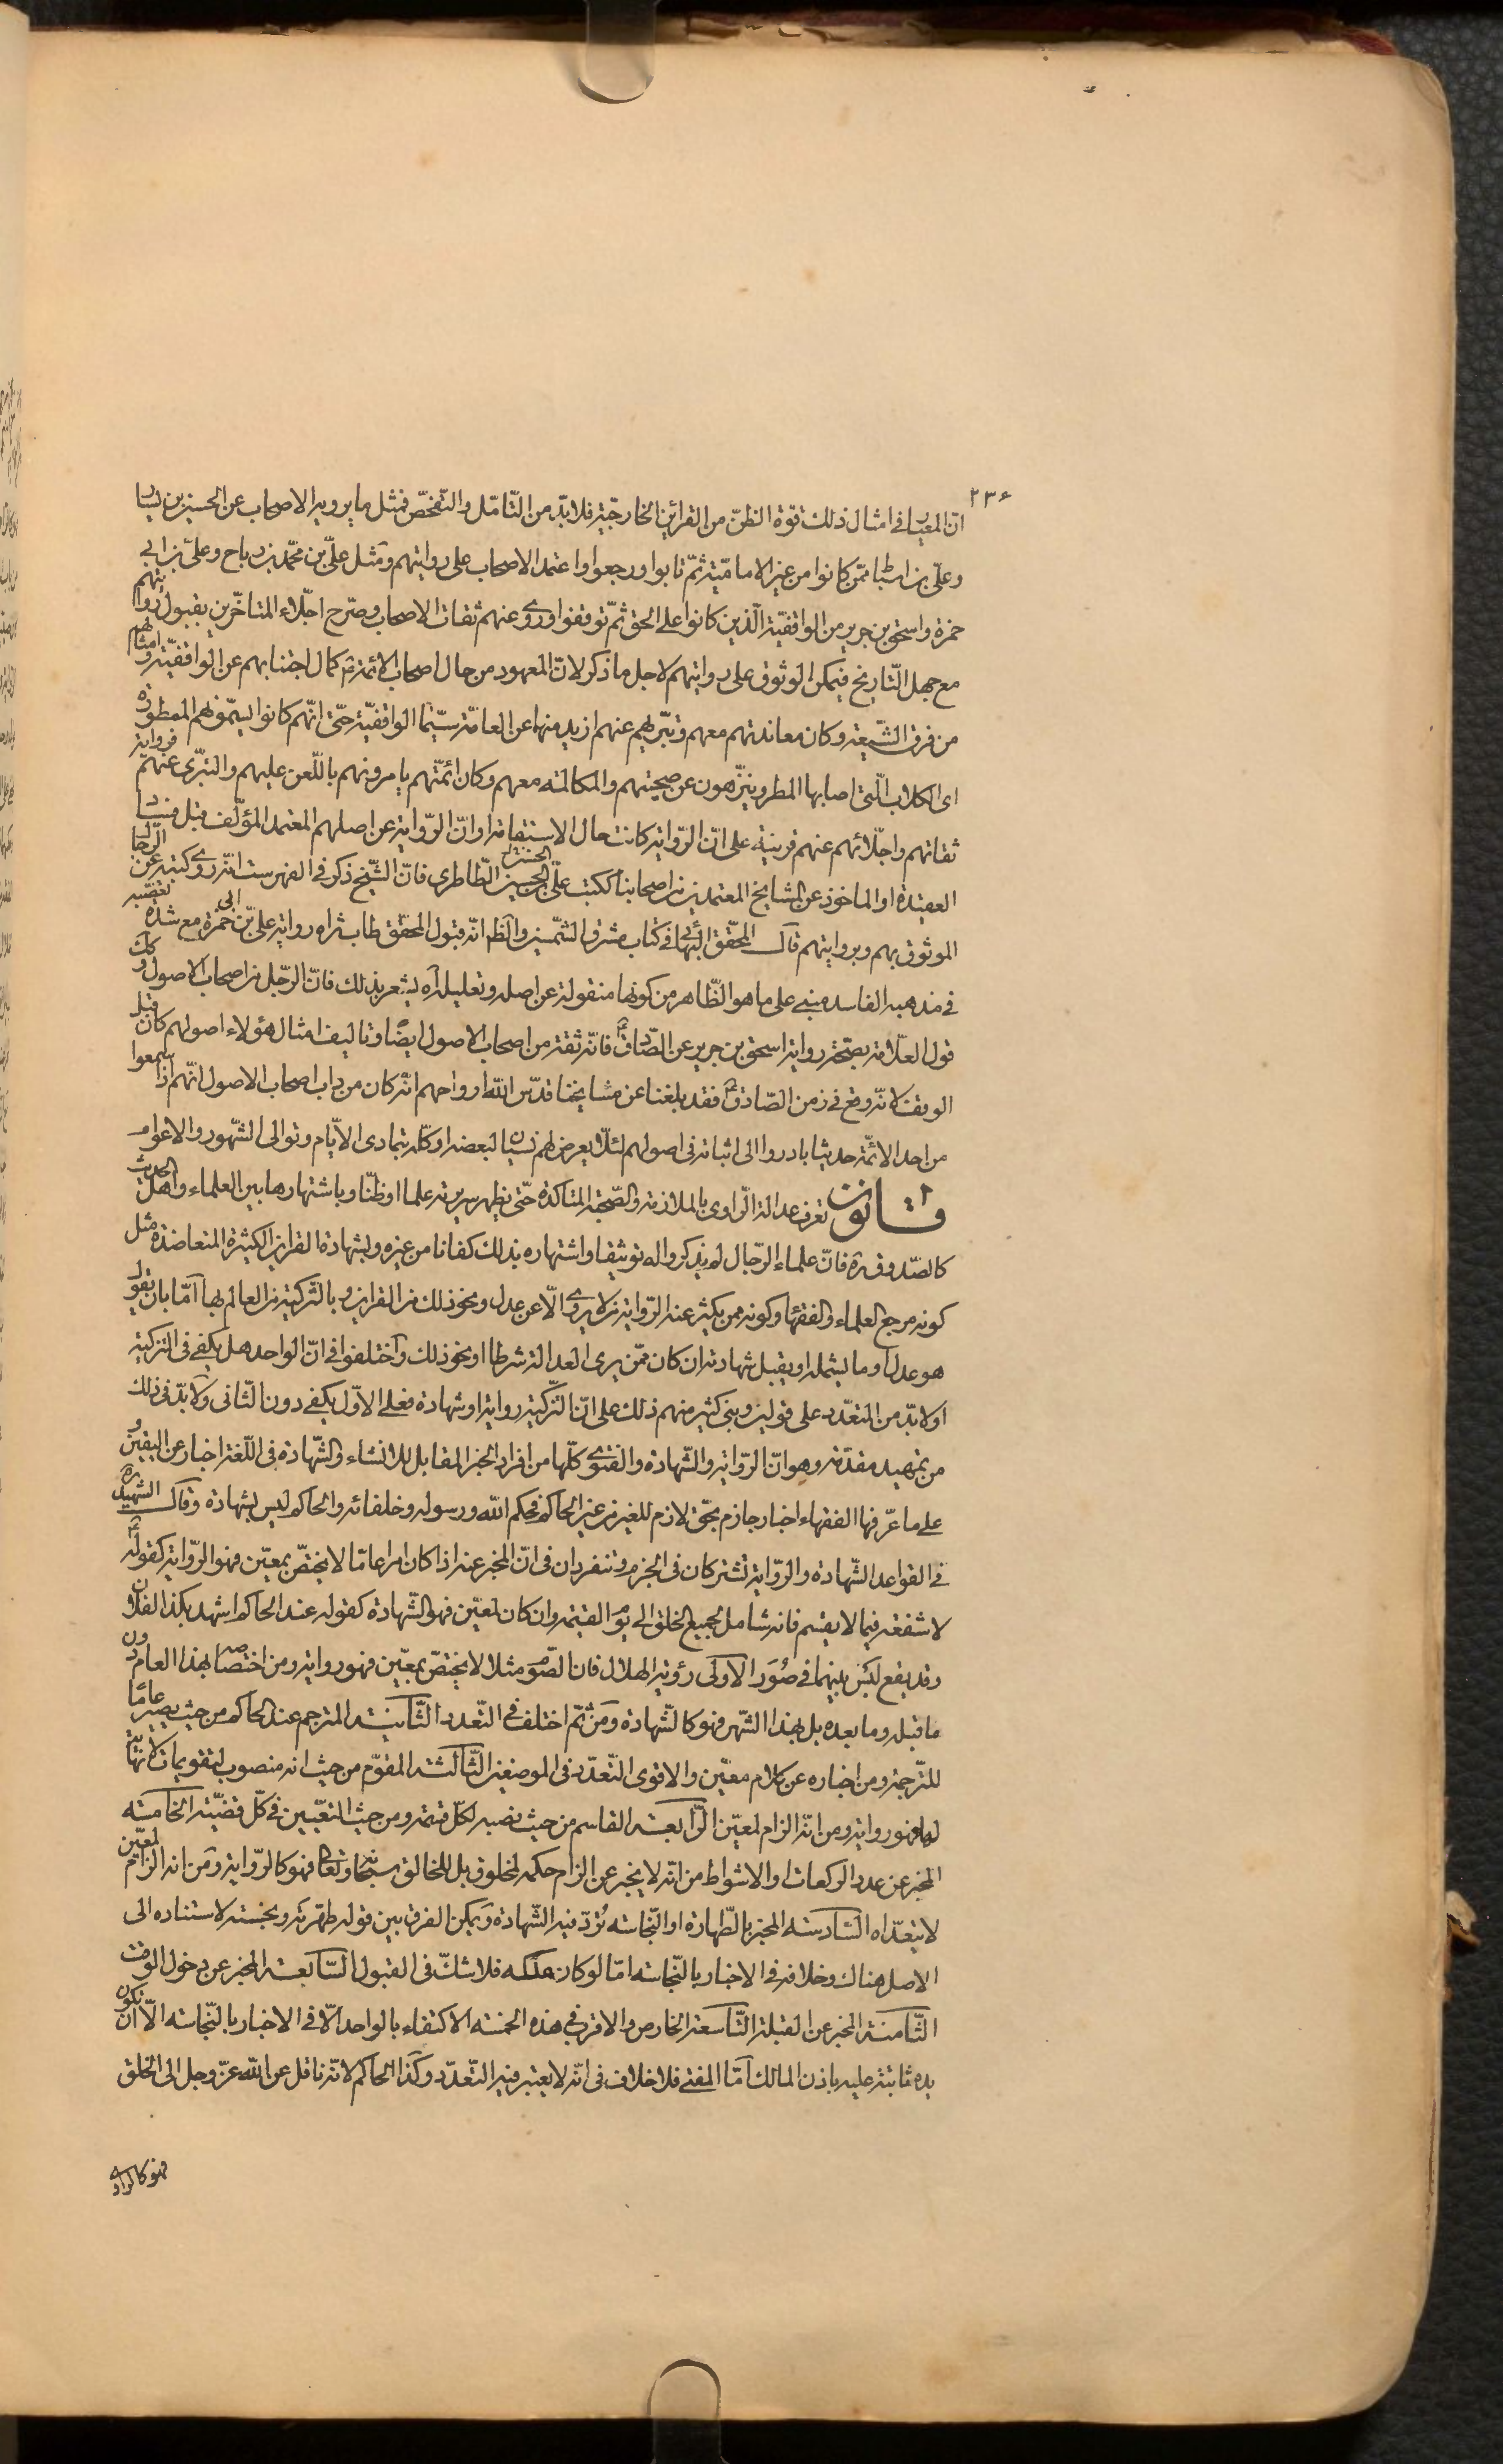 ٢٣۶
انّ المعيار فى امثال ذلك قوّة الظنّ من القرائن الخارجيّة فلابدّ من التّامّل والتّفحّص فمثل ما يرويه الاصحاب عن الحسين بن يسار
وعلى بن اسباط ممّن كانوا من غير الاماميّة ثمّ تابوا ورجعوا واعتمد الاصحاب على روايتهم ومثل علىّ بن محمّد بن رباح وعلىّ بن ابى
حمزة واسحق بن جرير من الواقفيّة الّذين كانوا على الحق ثمّ توقفوا وروى عنهم ثقات الاصحاب وصرّح اجلّاء المتاخّرين بقبول رواياتهم
مع جهل التّاريخ فيمكن الوثوق على روايتهم لاجل ما ذكر لانّ المعهود من حال اصحاب الائمّة ع كمال اجتنابهم عن الواقفيّة وامثالهم
من فرق الشّيعة وكان معاندتهم معهم وتبرّيهم عنهم ازيد منها عن العامّة سيّما الواقفيّة حتّى انّهم كانوا ليسمّونهم الممطورة
اى الكلاب الّتى اصابها المطر ويتنزّهون عن صحبتهم والمكالمة معهم وكان ائمّتهم يامرونهم باللّعن عليهم والتبرّى عنهم فرواية
ثقاتهم واجلّائهم عنهم قرينة على انّ الرّواية كانت حال الاستقامة او انّ الرّواية عن اصلهم المعتمد المؤلّف قبل فساد
العقيدة او الماخوذ عن المشايخ المعتمدين من اصحابنا ككتب علىّ بن الحسن الطّاطرى فانّ الشّيخ ذكر فى الفهرست انّه روى كتبه عن الرّجال
الموثوق بهم وبروايتهم قال المحقّق البهائى فى كتاب مشرق الشّمسين والظّم انّ قبول المحقّق طاب ثراه رواية علىّ بن ابى حمزة مع شدّة تعصّبه
فى مذهبه الفاسد مبنى على ما هو الظّاهر من كونها منقولة عن اصله وتعليله ره يشعر بذلك فانّ الرّجل من اصحاب الاصول وكك
قول العلّامة بصحّة رواية اسحق بن جرير عن الصّادق ع فانّه ثقة من اصحاب الاصول ايضًا وتاليف امثال هؤلاء اصولهم كان قبل
الوقف لانّه وقع فى زمن الصّادق ع فقد بلغنا عن مشايخنا قدّس الله ارواحهم انّه كان من داب اصحاب الاصول انّهم اذا سمعوا
من احد الائمّة حديثا بادروا الى اثباته فى اصولهم لئلّا يعرض لهم نسيان لبعضه او كلّه بتمادى الايّام وتوالى الشّهور والاعوام
قانون تعرف عدالة الرّاوى بالملازمة والصّحبة المتاكّدة حتّى يظهر سريرته علما او ظنّا وباشتهارها بين العلماء واهل الحديث
كالصّدوق ره فانّ علماء الرّجال لم يذكروا له توثيقا واشتهاره بذلك كفانا من غيره وبشهادة القراين الكثيرة المتعاضدة مثل
كونه مرجع العلماء والفقهاء وكونه ممن يكثر عنه الرّواية من لا يروى الّا عن عدل ونحو ذلك من القراين وبالتّزكية من العالم بها امّا بان يقول
هو عدل او ما يشمله او يقبل شهادته ان كان ممّن يرى العدالة شرطا او نحو ذلك واختلفوا فى انّ الواحد هل يكفى فى التزكية
او لابدّ من التعدّد على قولين وبنى كثير منهم ذلك على انّ التّزكية رواية او شهادة فعلى الاوّل يكفى دون الثّانى ولابدّ فى ذلك
من تمهيد مقدّمة وهو انّ الرّواية والشّهادة والفتوى كلّها من افراد الخبر المقابل للانشاء والشّهادة فى اللّغة اخبار عن اليقين و
على ما عرّفها الفقهاء اخبار جازم بحقّ لازم للغير من غير الحاكم فحكم الله ورسوله وخلفائه والحاكم ليس بشهادة وقال الشّهيد ره
فى القواعد الشّهادة والرّواية تشتركان فى الجزم وتنفردان فى انّ المخبر عنه اذا كان امرا عامّا لا يختصّ بمعيّن فهو الرّواية كقوله ع
لا شفعة فيما لا يقسم فانه شامل لجميع الخلق الى يوم القيمة وان كان لمعيّن فهو الشّهادة كقوله عند الحاكم اشهد بكذا لفلان
وقد يقع لبس بينهما فى صُوَر الاولى رؤية الهلال فان الصّوم مثلا لا يختصّ بمعيّن فهو رواية ومن اختصاصه بهذا العام دون
ما قبله وما بعده بل بهذا الشّهر فهو كالشّهادة ومن ثمّ اختلف فى التّعدد الثّانية المترجم عند الحاكم من حيث يصير عامًا
للتّرجمة ومن اخباره عن كلام معيّن والاقوى التّعدّد فى الموضعين الثّالثة المقوّم من حيث انه منصوب لتقويمات لا نهاية
لها فهو رواية ومن انّه الزام لمعيّن الرّابعة القاسم من حيث نصبه لكلّ قسمة ومن حيث التعيّين فى كلّ قضيّة الخامسة
المخبر عن عدد الركعات او الاشواط من انّه لا يخبر عن الزام حكم لمخلوق بل للخالق سبحانه وتعالى فهو كالرّواية ومن انه الزام لمعيّن
لا يتعدّاه السّادسة المخبر بالطّهارة او النّجاسة تُردّ فيه الشّهادة ويمكن الفرق بين قوله طهّرته ونجّسته لاستناده الى
الاصل هناك وخلافه فى الاخبار بالنّجاسة امّا لو كان ملكه فلا شكّ فى القبول السّابعة المخبر عن دخول الوقت
الثّامنة المخبر عن القبلة التّاسعة الخارص والاقرب فى هذه الخمسة الاكتفاء بالواحد الّا فى الاخبار بالنّجاسة الّا ان تكون
يده ثابتة عليه باذن المالك امّا المفتى فلا خلاف فى انّه لا يعتبر فيه التّعدّد وكذا الحاكم لانّه ناقل عن الله عزّ وجل الى الخلق
فهو كالراوى